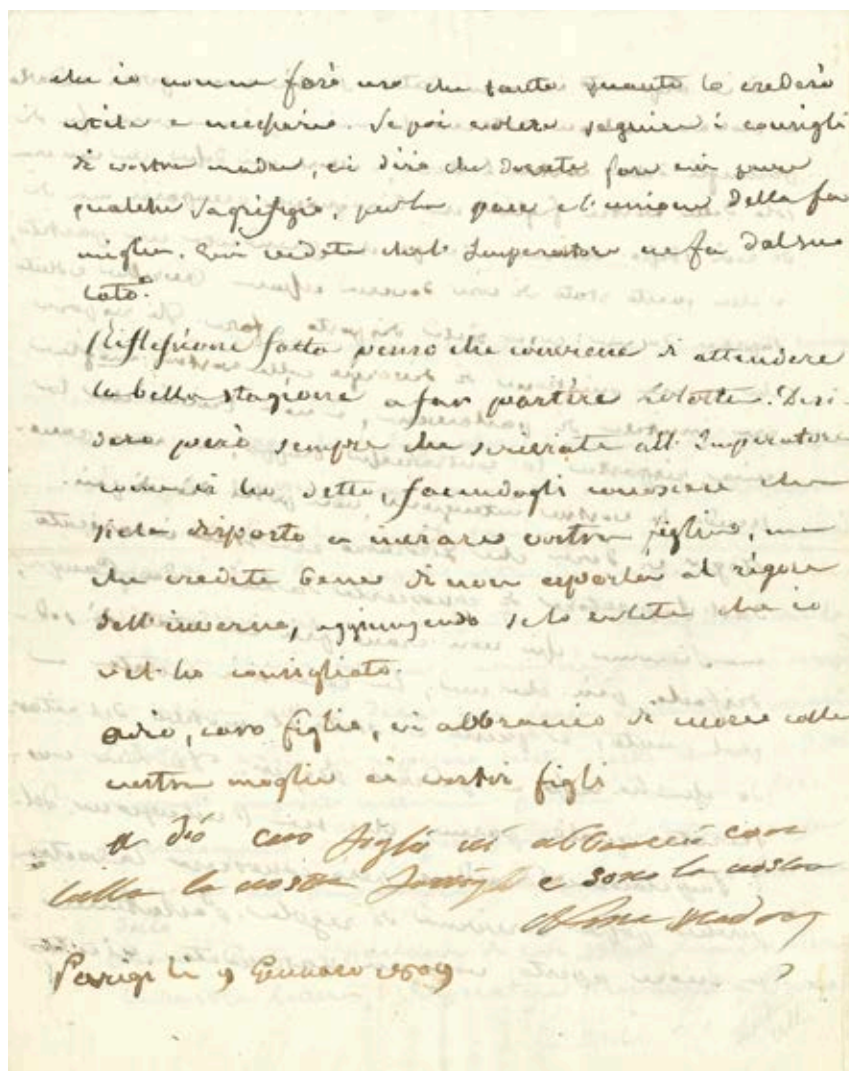 che io non ne farò uso che tanto quanto lo crederò
utile e necessario. Se poi volete seguire i consigli
di vostra madre, vi dirò che dovete fare voi pure
qualche sagrifizio, per la pace e l'unione della fa
miglia. Voi vedete che l'Imperatore ne fa dal suo
lato.
Riflessione fatta penso che conviene di attendere
la bella stagione a far partire Lolotte. Desi
dero però sempre che scriviate all'Imperatore
come vi ho detto, facendogli conoscere che
siete disposto a inviare vostra figlia, ma
che credete bene di non esporla al rigore
dell'inverno, aggiungendo se lo volete che io
ve l'ho consigliato.
Adio, caro figlio, vi abbraccio di cuore colla
vostra moglie ei vostri figli
a dio caro figlio vi abbraccio con
tutta la vostra famiglia e sono la vostra
Madre
Parigi li 9 Gennaro 1809